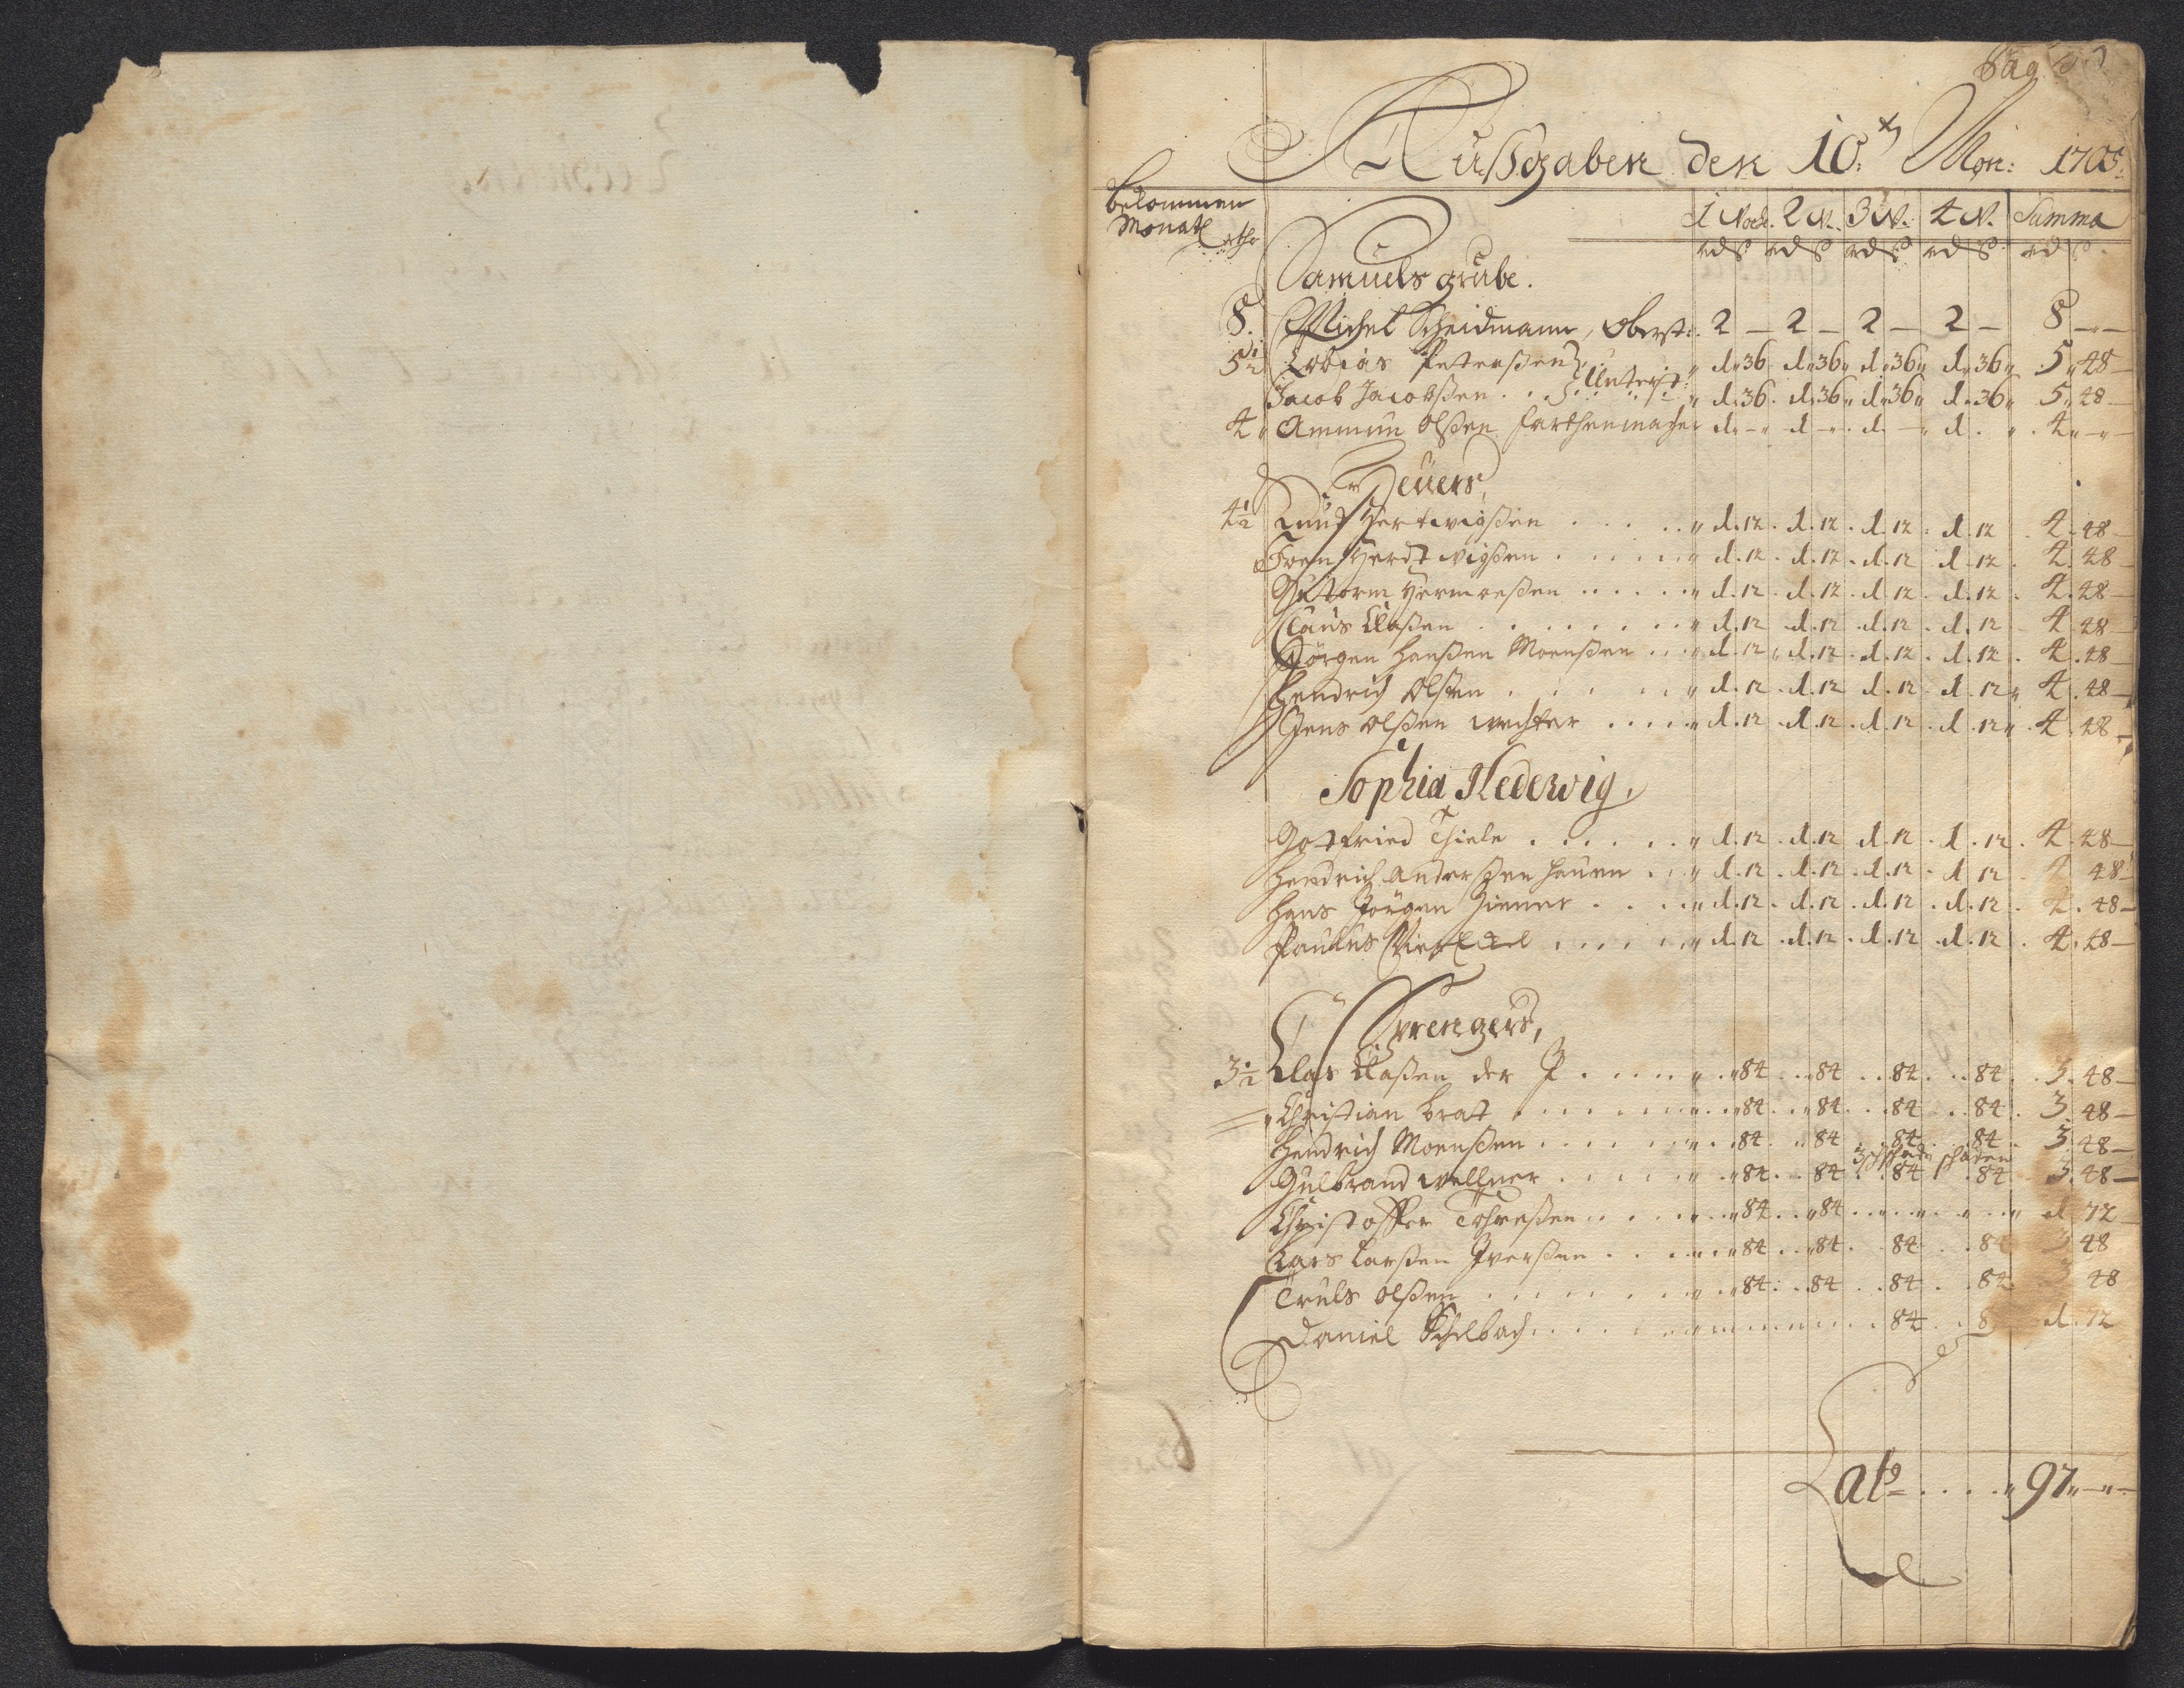 Pag
Außgaben den 10: Mon: 1705.
bekommen
Monatl rthr
1 Woch. 2 W. 3 W. 4 W. Summa
rd ß rd ß rd ß rd ß rd ß
Samuels grube.
8. Michel Scheidmann, Oberst: 2 — 2 — 2 — 2 — 8 — —
5 1/2 Tobias Peterßen 1 36 1 36 1 36 1 36 5 48 —
Jacob Jacobßen . . Unterst: 1 36 1 36 1 36 1 36 5 48 —
4 Ammun Olßen Karthenmacher 1 — 1 — 1 — 1 4 — —
Heuers,
4 1/2 Knut Hertwigßen . . . . 1 . 12 . 1 . 12 . 1 . 12 . 1 . 12 4 . 48 —
Sven Herdtwigßen . . . . 1 . 12 . 1 . 12 . 1 . 12 1 . 12 . 4 . 48 —
Guttorm Hermanßen . . . . 1 . 12 . 1 . 12 . 1 . 12 . 1 . 12 . 4 . 48 —
Claus Claßen . . . . 1 . 12 . 1 . 12 . 1 . 12 . 1 . 12 4 48 —
Jörgen Hanßen Monßen . . . 1 . 12 . 1 . 12 . 1 . 12 . 1 . 12 . 4 . 48 —
Hendrich Olßen . . . . 1 . 12 . 1 . 12 1 . 12 . 1 . 12 4 . 48 —
Jens Olßen wechter . . . . 1 . 12 . 1 . 12 . 1 . 12 . 1 . 12 . 4 . 48 —
Sophia Hedewig,
Gottfried Thiele . . . . 1 . 12 . 1 . 12 1 . 12 . 1 . 12 . 4 . 48 —
Hendrich Anderßen Hauen . . 1 . 12 . 1 . 12 . 1 . 12 . 1 12 . 4 48 —
Hans Jörgen Hiemer . . . 1 . 12 . 1 . 12 . 1 . 12 . 1 . 12 . 4 . 48 —
Paulus . . . . 1 . 12 . 1 . 12 . 1 . 12 . 1 . 12 . 4 . 48 —
Sprengers,
3 1/2 Clas Claßen der J . . . . 84 . . 84 . . 84 . . 84 . . 3 . 48 —
Christian brat . . . . 84 . . 84 . . 84 . . 84 . 3 . 48 —
Hendrich Monßen . . . . 84 . . 84 . 84 . . 84 . 3 . 48 —
schaden
Gulbrand wellner . . . . 84 . . 84 . . 84 . . 84 . 3 . 48 —
Christoffer Tohreßen . . . . 84 . . 84 . . . . 1 72
Lars Larßen Iverßen . . . . 84 . . 84 . . 84 . . 84 3 48
Truls Olßen . . . . 84 . . 84 . . 84 . . 84 3 48
Daniel Schelbach . . . . 84 . . 8 1 . 72
Lato . . . . 97 — —